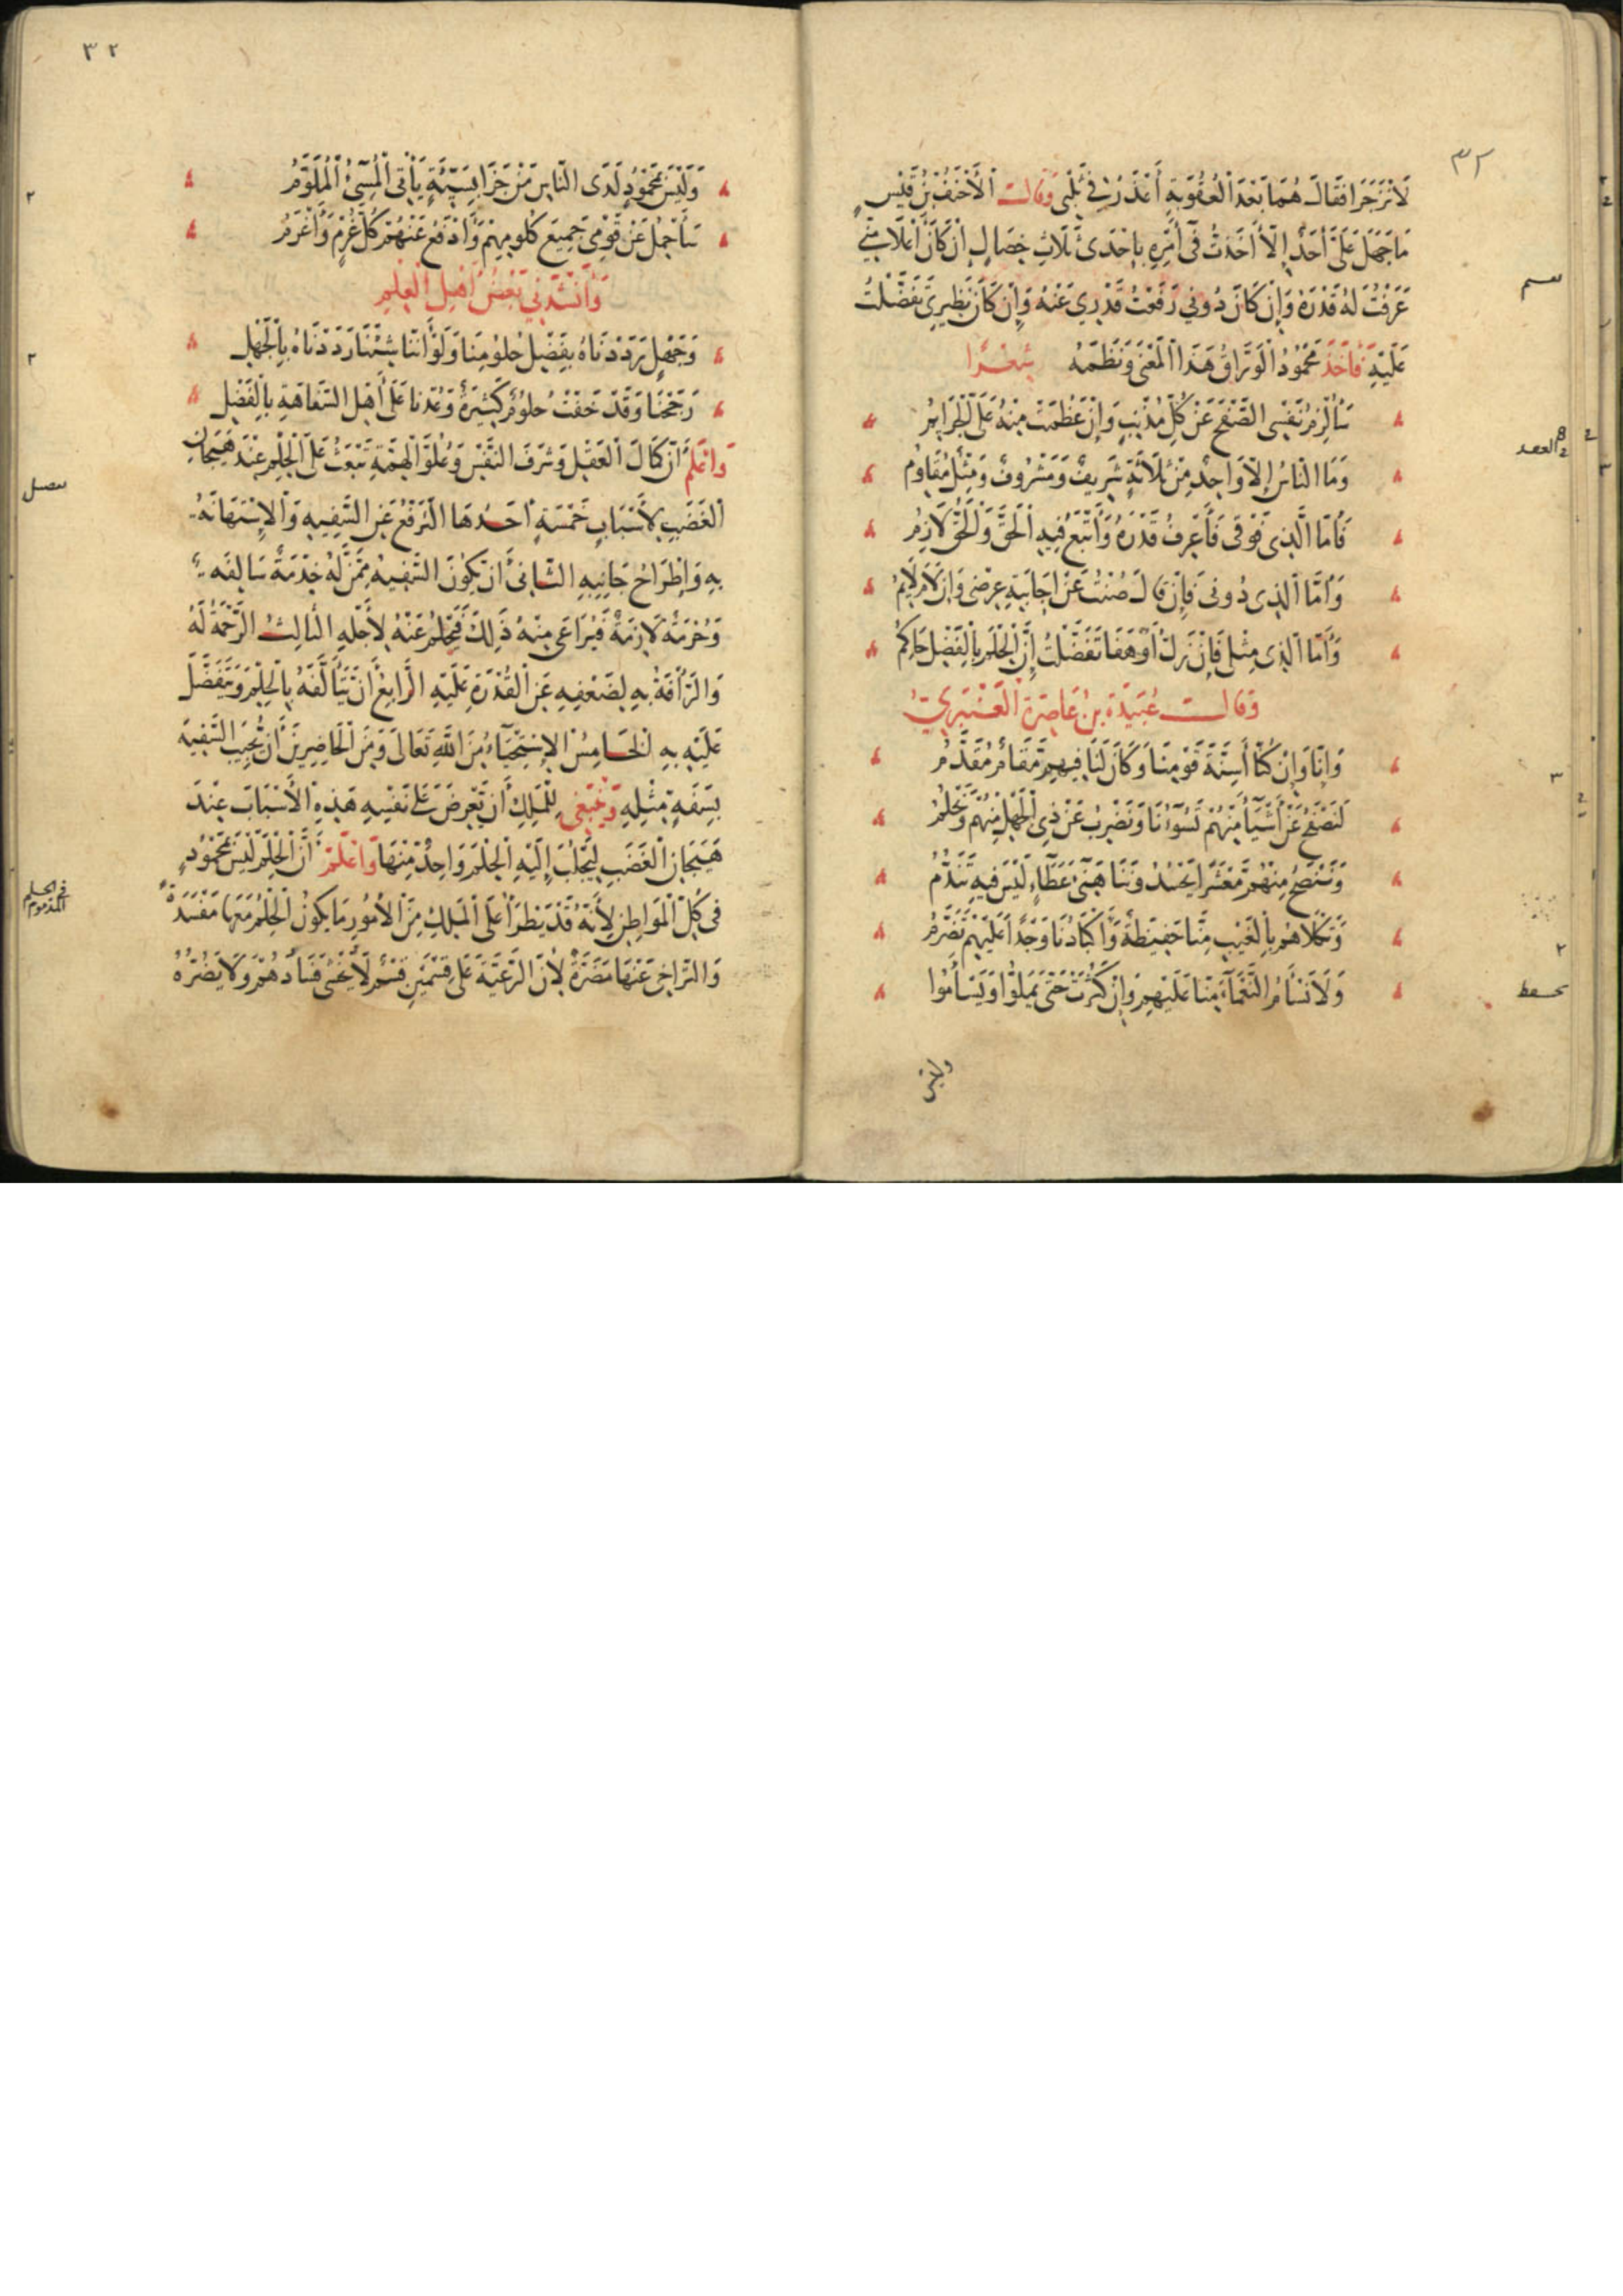 ٣٢
لَانْزَجَرَا فَقَالَ هُمَا بَعْدَ الْعُقُوبَةِ أَعْذَرُ فِي ثَلْبِي وَقَالَ الْأَحْنَفُ بْنُ قَيْسٍ
مَا جَهِلَ عَلَيَّ أَحَدٌ إِلَّا أَخَذْتُ فِي أَمْرِهِ بِإِحْدَى ثَلَاثِ خِصَالٍ إِنْ كَانَ أَعْلَا مِنِّي
عَرَفْتُ لَهُ قَدْرَهُ وَإِنْ كَانَ دُونِي رَفَعْتُ قَدْرِي عَنْهُ وَإِنْ كَانَ نَظِيرِي تَفَضَّلْتُ
عَلَيْهِ فَأَخَذَ مَحْمُودُ الْوَرَّاقُ هَذَا الْمَعْنَى وَنَظَمَهُ شِعْرًا
سَأُلْزِمُ نَفْسِي الصَّفْحَ عَنْ كُلِّ مُذْنِبٍ وَإِنْ عَظُمَتْ مِنْهُ عَلَيَّ الْجَرَائِمُ
وَمَا النَّاسُ إِلَّا وَاحِدٌ مِنْ ثَلَاثَةٍ شَرِيفٌ وَمَشْرُوفٌ وَمِثْلٌ مُقَاوِمُ
فَأَمَّا الَّذِي فَوْقِي فَأَعْرِفُ قَدْرَهُ وَأَتْبَعُ فِيهِ الْحَقَّ وَالْحَقُّ لَازِمُ
وَأَمَّا الَّذِي دُونِي فَإِنْ قَالَ صُنْتُ عَنْ إِجَابَتِهِ عِرْضِي وَإِنْ لَامَ لَائِمُ
وَأَمَّا الَّذِي مِثْلِي فَإِنْ زَلَّ أَوْ هَفَا تَفَضَّلْتُ إِنَّ الْحِلْمَ بِالْفَضْلِ حَاكِمُ
وَقَالَ عُبَيْدَةُ بْنُ عَاصِرَةَ الْعَنْبَرِيُّ
وَإِنَّا وَإِنْ كُنَّا أَسِنَّةَ قَوْمِنَا وَكَانَ لَنَا فِيهِمْ مَقَامٌ مُقَدَّمُ
لَنَصْفَحُ عَنْ أَشْيَآءَ مِنْهُمْ تَسُوءُنَا وَنَضْرِبُ عَنْ ذِي الْجَهْلِ مِنْهُمْ وَنَحْلُمُ
وَنَنْصَحُ مِنْهُمْ مَعْشَرًا يَحْسُدُونَنَا هَنِيَّ عَطَآءٍ لَيْسَ فِيهِ تَنَدُّمُ
وَنَكْلَاهُمْ بِالْغَيْبِ مِنَّا حَفِيظَةٌ وَأَكْبَادُنَا وَجْدًا عَلَيْهِمْ تَضَرَّمُ
وَلَا نَسْأَمُ النَّعْمَآءَ مِنَّا عَلَيْهِمْ وَإِنْ كَثُرَتْ حَتَّى يَمَلُّوا وَيَسْأَمُوا
وليس
٣٢
وَلَيْسَ بِمَحْمُودٍ لَدَى النَّاسِ مَنْ جَزَا بِسَيِّئَةٍ يَأْتِي الْمُسِيءُ الْمُلَوَّمُ
سَأَحْمِلُ عَنْ قَوْمِي جَمِيعَ كُلُومِهِمْ وَأَدْفَعُ عَنْهُمْ كُلَّ غُرْمٍ وَأَغْرَمُ
وَأَنْشَدَنِي بَعْضُ أَهْلِ الْعِلْمِ
وَجَهْلٍ رَدَدْنَاهُ بِفَضْلِ حُلُومِنَا وَلَوْ أَنَّنَا شِئْنَا رَدَدْنَاهُ بِالْجَهْلِ
رَجَحْنَا وَقَدْ خَفَّتْ حُلُومٌ كَثِيرَةٌ وَعُدْنَا عَلَى أَهْلِ السَّفَاهَةِ بِالْفَضْلِ
وَاعْلَمْ أَنَّ كَمَالَ الْعَقْلِ وَشَرَفَ النَّفْسِ وَعُلُوَّ الْهِمَّةِ تَبْعَثُ عَلَى الْحِلْمِ عِنْدَ هَيَجَانِ
الْغَضَبِ لِأَسْبَابٍ خَمْسَةٍ أَحَدُهَا التَّرَفُّعُ عَنِ السَّفِيهِ وَالِاسْتِهَانَةُ
بِهِ وَاطِّرَاحُ جَانِبِهِ الثَّانِي أَنْ يَكُونَ السَّفِيهُ مِمَّنْ لَهُ خِدْمَةٌ سَالِفَه
وَحُرْمَةٌ لَازِمَةٌ فَيُرَاعَى مِنْهُ ذَلِكَ فَيُحْلَمُ عَنْهُ لِأَجْلِهِ الثَّالِثُ الرَّحْمَةُ لَهُ
وَالرَّأْفَةُ بِهِ لِضَعْفِهِ عَنِ الْقُدْرَةِ عَلَيْهِ الرَّابِعُ أَنْ يَتَأَلَّفَهُ بِالْحِلْمِ وَيَتَفَضَّلَ
عَلَيْهِ بِهِ الْخَامِسُ الِاسْتِحْيَآءُ مِنَ اللهِ تَعَالَى وَمِنَ الْحَاضِرِينَ أَنْ يُجِيبَ السَّفِيهَ
بِسَفَهٍ مِثْلِهِ وَيَنْبَغِي لِلْمَلِكِ أَنْ يَعْرِضَ عَلَى نَفْسِهِ هَذِهِ الْأَسْبَابَ عِنْدَ
هَيَجَانِ الْغَضَبِ لِيَجْلُبَ إِلَيْهِ الْحِلْمَ وَاحِدٌ مِنْهَا وَاعْلَمْ أَنَّ الْحِلْمَ لَيْسَ بِمَحْمُودٍ
فِي كُلِّ الْمَوَاطِنِ لِأَنَّهُ قَدْ يَطْرَأُ عَلَى الْمَلِكِ مِنَ الْأُمُورِ مَا يَكُونُ الْحِلْمُ مَعَهَا مَفْسَدَةٌ
وَالتَّرَاخِي عَنْهَا مَضَرَّةٌ لِأَنَّ الرَّعِيَّةَ عَلَى قِسْمَيْنِ قِسْمٌ لَا يُخْشَى فَسَادُهُمْ وَلَا يَضُرُّهُ
في الحلم
المذموم